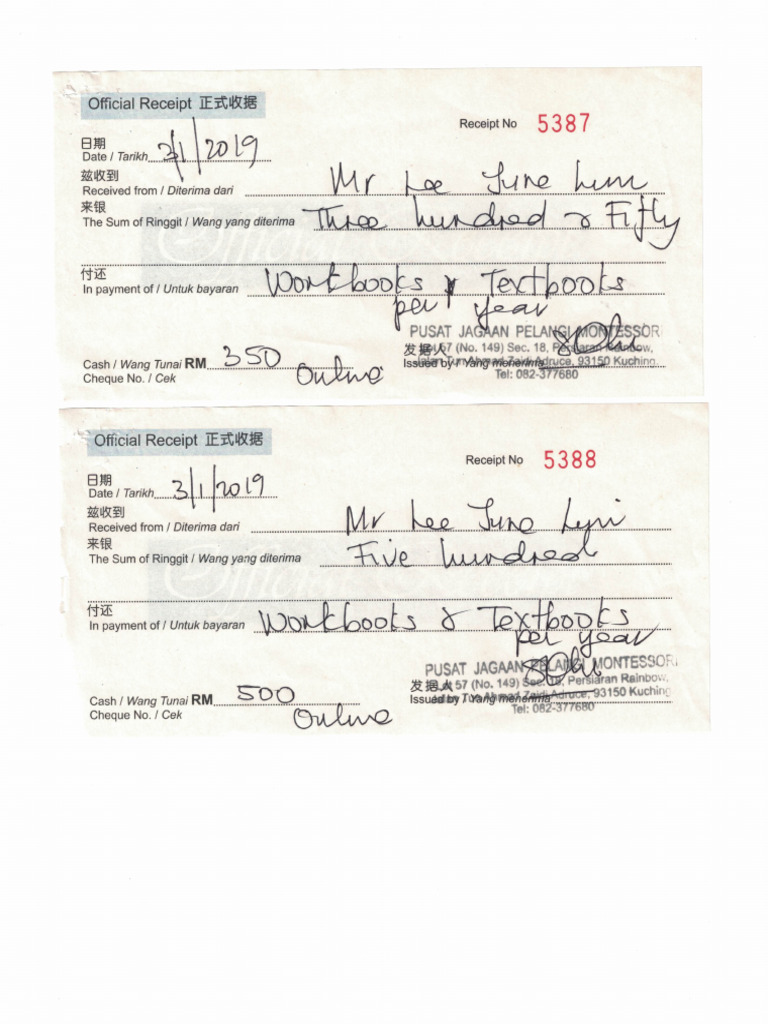 Official Receipt 正式收据
Receipt No 5387
日期
Date / Tarikh 3/1/2019
兹收到
Received from / Diterima dari Mr Lee June
来银
The Sum of Ringgit / Wang yang diterima Three hundred & Fifty
付还
In payment of / Untuk bayaran Workbooks & Textbooks
per year
PUSAT JAGAAN PELANGI MONTESSORI
发据人 57 (No. 149) Sec. 18, Persiaran Rainbow,
Cash / Wang Tunai RM 350
Issued by / Yang menerima Jalan Tun Ahmad Zaidi Adruce, 93150 Kuching.
Cheque No. / Cek Online
Tel: 082-377680
Official Receipt 正式收据
Receipt No 5388
日期
Date / Tarikh 3/1/2019
兹收到
Received from / Diterima dari Mr Lee June
来银
The Sum of Ringgit / Wang yang diterima Five hundred
付还
In payment of / Untuk bayaran Workbooks & Textbooks
per year
PUSAT JAGAAN PELANGI MONTESSORI
发据人 57 (No. 149) Sec. 18, Persiaran Rainbow,
Cash / Wang Tunai RM 500
Issued by / Yang menerima Jalan Tun Ahmad Zaidi Adruce, 93150 Kuching
Cheque No. / Cek Online
Tel: 082-377680